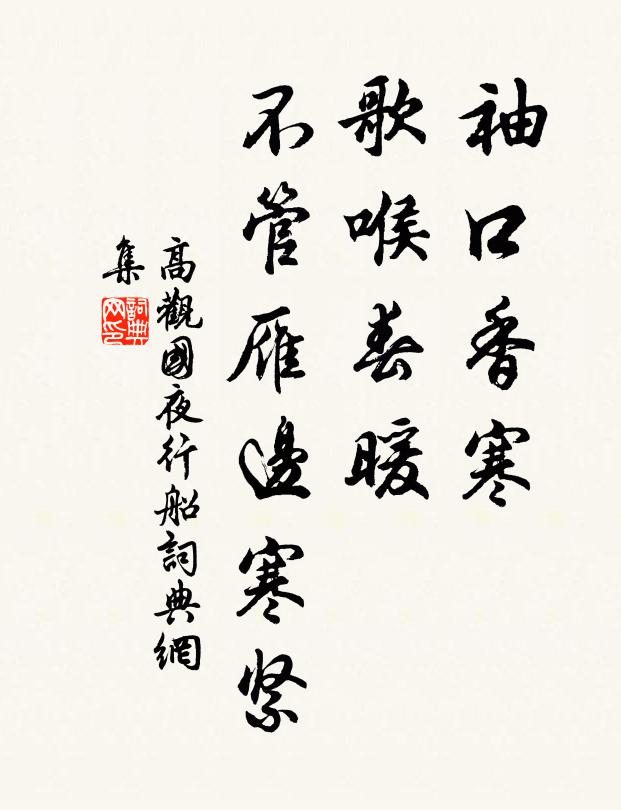 袖口香寒
歌喉春暖
不管雁邊寒緊
高觀國夜行船詞典網
集
詞典
网印